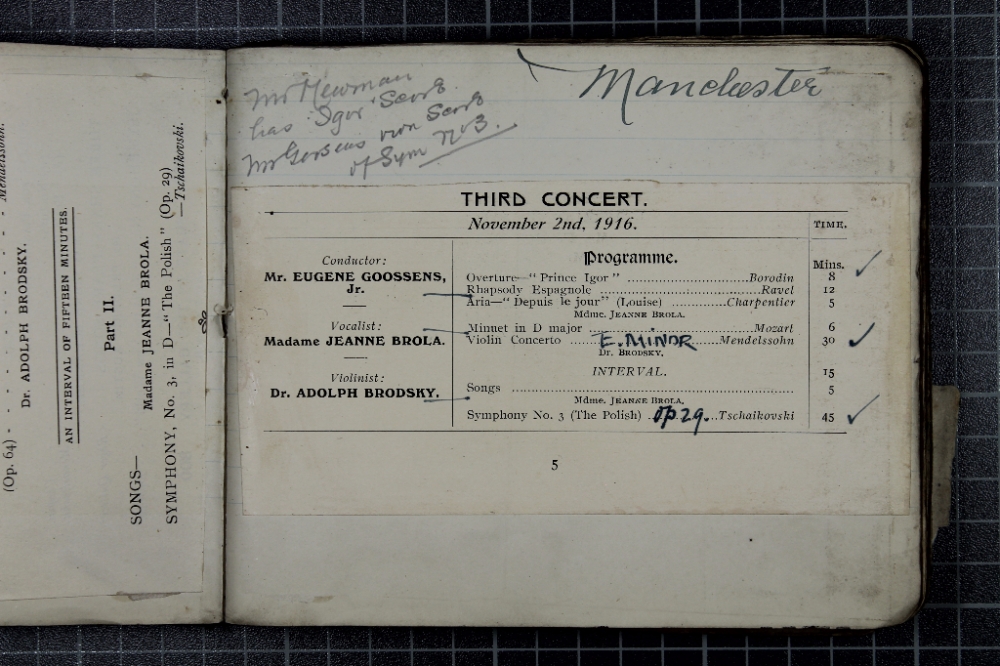 Mendelssohn.
(Op. 64) - - - - - - -
Dr. ADOLPH BRODSKY.
AN INTERVAL OF FIFTEEN MINUTES.
Part II.
SONGS—
Madame JEANNE BROLA.
SYMPHONY, No. 3, in D—"The Polish" (Op. 29)
—Tschaikovski.
Manchester
Mr Newman
has Igor Score
Mr Goossens own Score
of Sym No 3.
THIRD CONCERT.
November 2nd, 1916.
TIME.
Conductor:
Mr. EUGENE GOOSSENS,
Jr.
Vocalist:
Madame JEANNE BROLA.
Violinist:
Dr. ADOLPH BRODSKY.
Programme.
Mins.
Overture—"Prince Igor" ... Borodin 8
Rhapsody Espagnole ... Ravel 12
Aria—"Depuis le jour" (Louise) ... Charpentier 5
Mdme. JEANNE BROLA.
Minuet in D major ... Mozart 6
Violin Concerto ... E. MINOR ... Mendelssohn 30
Dr. BRODSKY.
INTERVAL. 15
Songs ... 5
Mdme. JEANNE BROLA.
Symphony No. 3 (The Polish) ... op 29. ... Tschaikovski 45
5